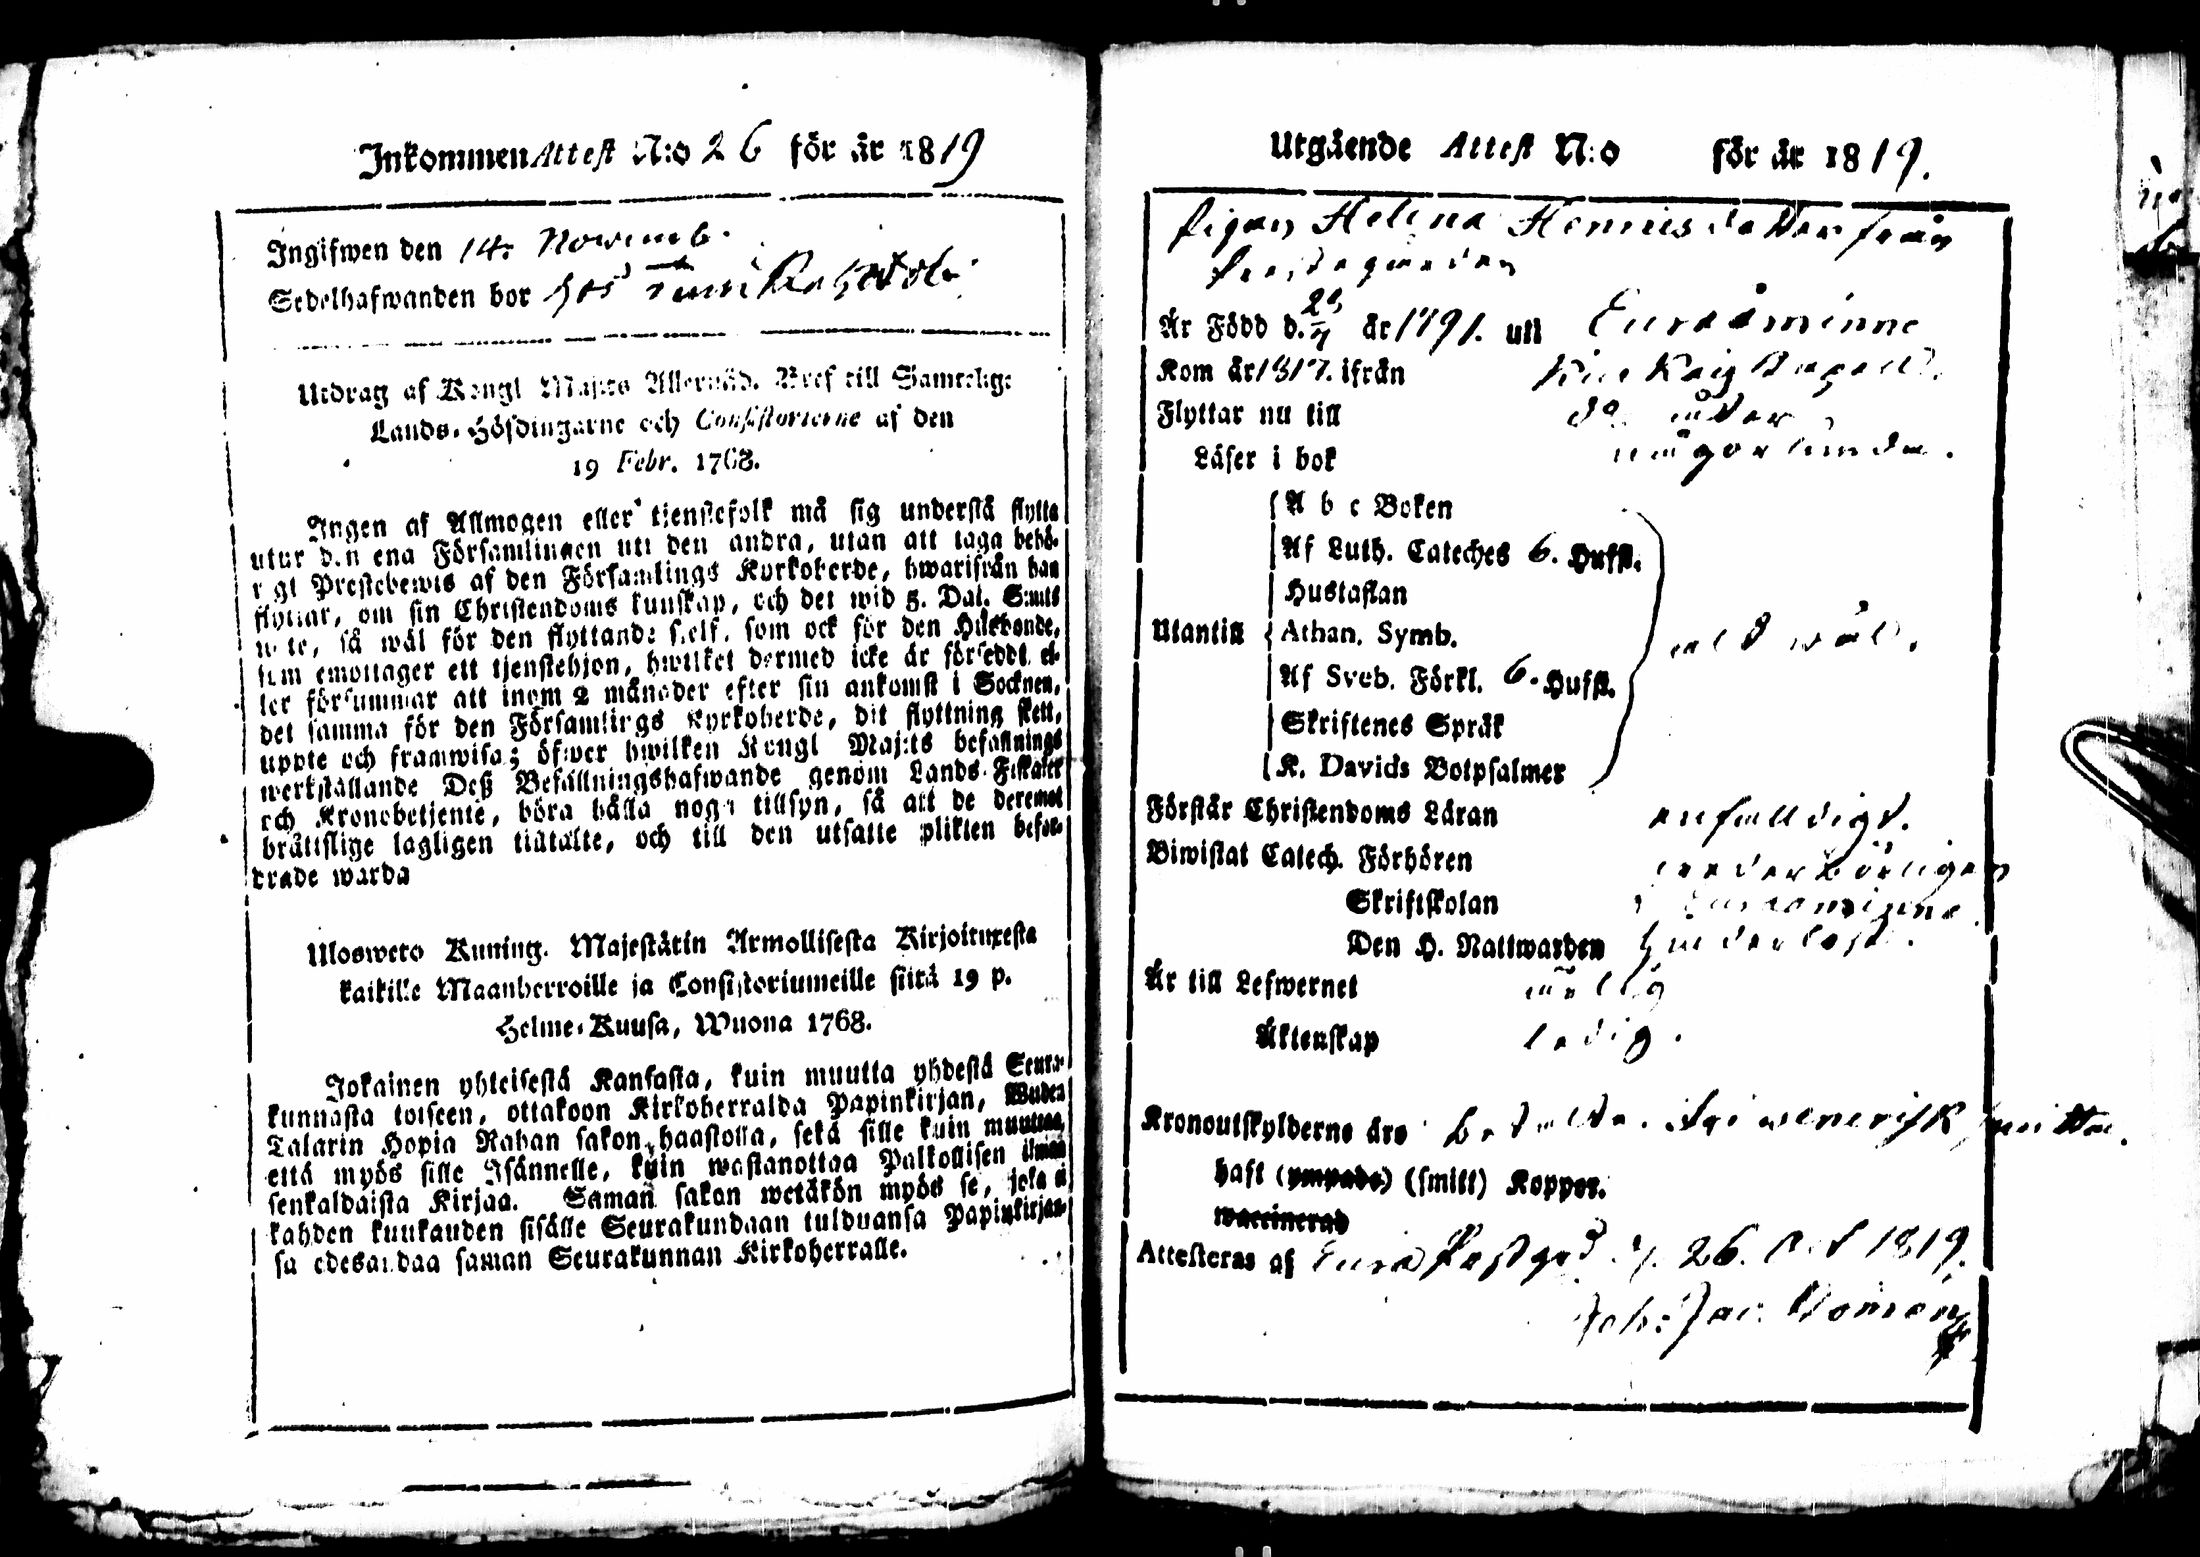 Inkommen Attest N:o 26 för år 1819
Ingifwen den 14. Novemb.
Sedelhafwanden bor hos
Utdrag af Kongl Maj:ts Allernåd. Bref till Samtelige
Lands-Höfdingarne och Consistorierne af den
19 Febr. 1768.
Ingen af Allmogen eller tjenstefolk må sig understå flytta
utur den ena Församlingen uti den andra, utan att taga behö-
rigt Prestebewis af den Församlings Kyrkoherde, hwarifrån han
flyttar, om sin Christendoms kunskap, och det wid 5. Dal. S:mts
wite, så wäl för den flyttande sielf, som ock för den Husbonde,
som emottager ett tjenstehjon, hwilket dermed icke är försedt, el-
ler försummar att inom 2 månader efter sin ankomst i Socknen,
det samma för den Församlings Kyrkoherde, dit flyttning skett,
uppte och framwisa; öfwer hwilken Kongl Maj:ts befallnings
werkställande Deß Befallningshafwande genom Lands-Fiskaler
och Kronobetjente, böra hålla noga tillsyn, så att de deremot
bråttslige lagligen tiltalte, och till den utsatte plikten befor-
drade warda
Ulosweto Kuning. Majestätin Armollisesta Kirjoituxesta
kaikille Maanherroille ja Consistoriumeille siitä 19 p.
Helme-Kuusa, Wuona 1768.
Jokainen yhteisestä Kansasta, kuin muutta yhdestä Seura-
kunnasta toiseen, ottakoon Kirkoherralda Papinkirjan, Wuden
Talarin Hopia Rahan sakon haastolla, sekä sille kuin muuttaa,
että myös sille Isännelle, kuin wastanottaa Palkollisen ilman
senkaldaista Kirjaa. Saman sakon wetäkön myös se, joka ei
kahden kuukauden sisälle Seurakundaan tulduansa Papinkirjan-
sa edesandaa saman Seurakunnan Kirkoherralle.
Utgående Attest N:o för år 1819.
Pigan Helena Henricsdotter från
Prestegården
Är Född d. år 1791. uti Euraåminne
Kom år 1817. ifrån
Flyttar nu till do åter
Läser i bok någorlunda.
A b c Boken
Af Luth. Cateches 6. Hufst.
Hustaflan
Utantill Athan. Symb. wäl.
Af Sveb. Förkl. 6. Hufst.
Skriftenes Språk
K. Davids Botpsalmer
Förstår Christendoms Läran enfalldigt.
Biwistat Catech. Förhören wederbörligen
Skriftskolan i Euraåminne
Den H. Nattwarden hinderlöst.
Är till Lefwernet
Äktenskap ledig.
Kronoutskylderne äro betalta. fri wenerisk smitta.
haft (ympade) (smitt) Koppor.
waccinerad
Attesteras af Eura Prestgrd d. 26. Oct 1819.
Joh: Jac: